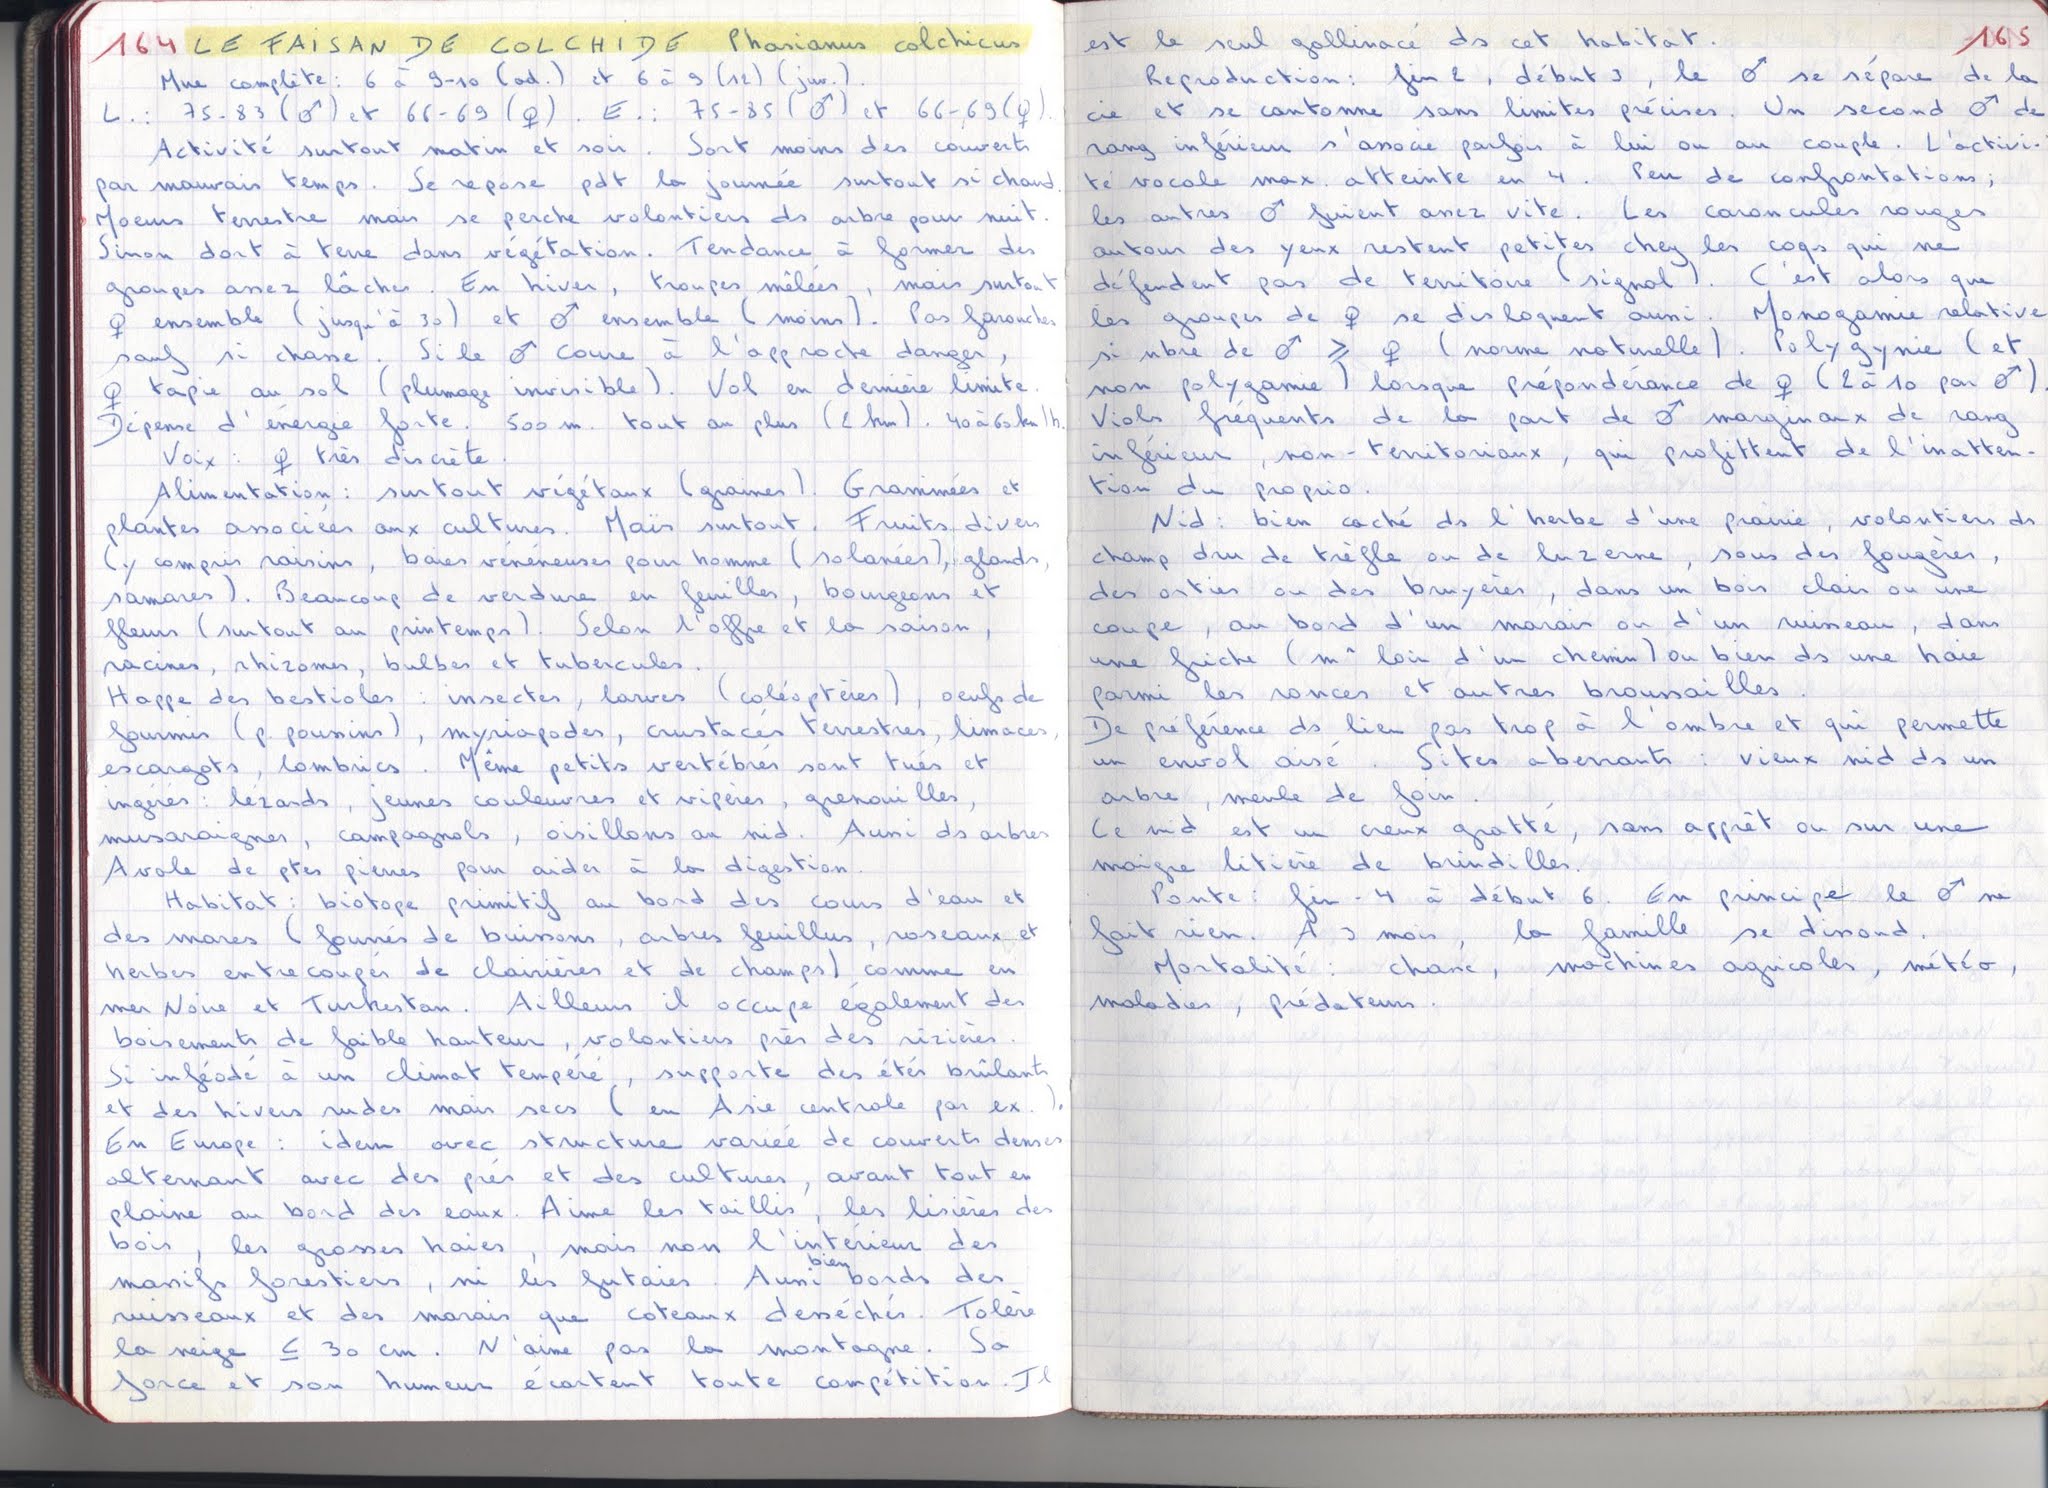 164 LE FAISAN DE COLCHIDE Phasianus colchicus
Mue complète : 6 à 9-10 (ad.) et 6 à 9 (12) (juv.)
L. : 75-83 (♂) et 66-69 (♀). E. : 75-85 (♂) et 66-69 (♀).
Activité surtout matin et soir. Sort moins des couverts
par mauvais temps. Se repose pdt la journée surtout si chaud.
Moeurs terrestre mais se perche volontiers ds arbre pour nuit.
Sinon dort à terre dans végétation. Tendance à former des
groupes assez lâches. En hiver, troupes mêlées, mais surtout
♀ ensemble (jusqu'à 30) et ♂ ensemble (moins). Pas farouches
sauf si chasse. Si le ♂ coure à l'approche danger,
♀ tapie au sol (plumage invisible). Vol en dernière limite.
Dépense d'énergie forte. 500 m. tout au plus (2 km). 40 à 60 km/h.
Voix : ♀ très discrète.
Alimentation : surtout végétaux (graines). Graminées et
plantes associées aux cultures. Maïs surtout. Fruits divers
(y compris raisins, baies vénéneuses pour homme (solanées), glands,
samares). Beaucoup de verdure en feuilles, bourgeons et
fleurs (surtout au printemps). Selon l'offre et la saison,
racines, rhizomes, bulbes et tubercules.
Happe des bestioles : insectes, larves (coléoptères), oeufs de
fourmis (p. poussins), myriapodes, crustacés terrestres, limaces,
escargots, lombrics. Même petits vertébrés sont tués et
ingérés : lézards, jeunes couleuvres et vipères, grenouilles,
musaraignes, campagnols, oisillons au nid. Aussi ds arbres
Avale de ptes pierres pour aider à la digestion.
Habitat : biotope primitif au bord des cours d'eau et
des mares (fourrés de buissons, arbres feuillus, roseaux et
herbes entrecoupés de clairières et de champs) comme en
mer Noire et Turkestan. Ailleurs il occupe également des
boisements de faible hauteur, volontiers près des rizières.
Si inféodé à un climat tempéré, supporte des étés brûlants
et des hivers rudes mais secs (en Asie centrale par ex.).
En Europe : idem avec structure variée de couverts denses
alternant avec des prés et des cultures, avant tout en
plaine au bord des eaux. Aime les taillis, les lisières des
bois, les grosses haies, mais non l'intérieur des
massifs forestiers, ni les futaies. Aussi bien bords des
ruisseaux et des marais que coteaux desséchés. Tolère
la neige ≤ 30 cm. N'aime pas la montagne. Sa
force et son humeur écartent toute compétition. Il
165
est le seul gallinacé ds cet habitat.
Reproduction : fin 2, début 3, le ♂ se sépare de la
cie et se cantonne sans limites précises. Un second ♂ de
rang inférieur s'associe parfois à lui ou au couple. L'activi-
té vocale max. atteinte en 4. Peu de confrontations ;
les autres ♂ fuient assez vite. Les caroncules rouges
autour des yeux restent petites chez les coqs qui ne
défendent pas de territoire (signal). C'est alors que
les groupes de ♀ se disloquent aussi. Monogamie relative
si nbre de ♂ ⩾ ♀ (norme naturelle). Polygynie (et
non polygamie) lorsque prépondérance de ♀ (2 à 10 par ♂).
Viols fréquents de la part de ♂ marginaux de rang
inférieur, non-territoriaux, qui profittent de l'inatten-
tion du proprio.
Nid : bien caché ds l'herbe d'une prairie, volontiers ds
champ dru de trèfle ou de luzerne, sous des fougères,
des orties ou des bruyères, dans un bois clair ou une
coupe, au bord d'un marais ou d'un ruisseau, dans
une friche (m^ loin d'un chemin) ou bien ds une haie
parmi les ronces et autres broussailles.
De préférence ds lieu pas trop à l'ombre et qui permette
un envol aisé. Sites aberrants : vieux nid ds un
arbre, meule de foin.
Ce nid est un creux gratté, sans apprêt ou sur une
maigre litière de brindilles.
Ponte : fin - 4 à début 6. En principe le ♂ ne
fait rien. A 3 mois, la famille se dissoud.
Mortalité : chasse, machines agricoles, météo,
maladies, prédateurs.